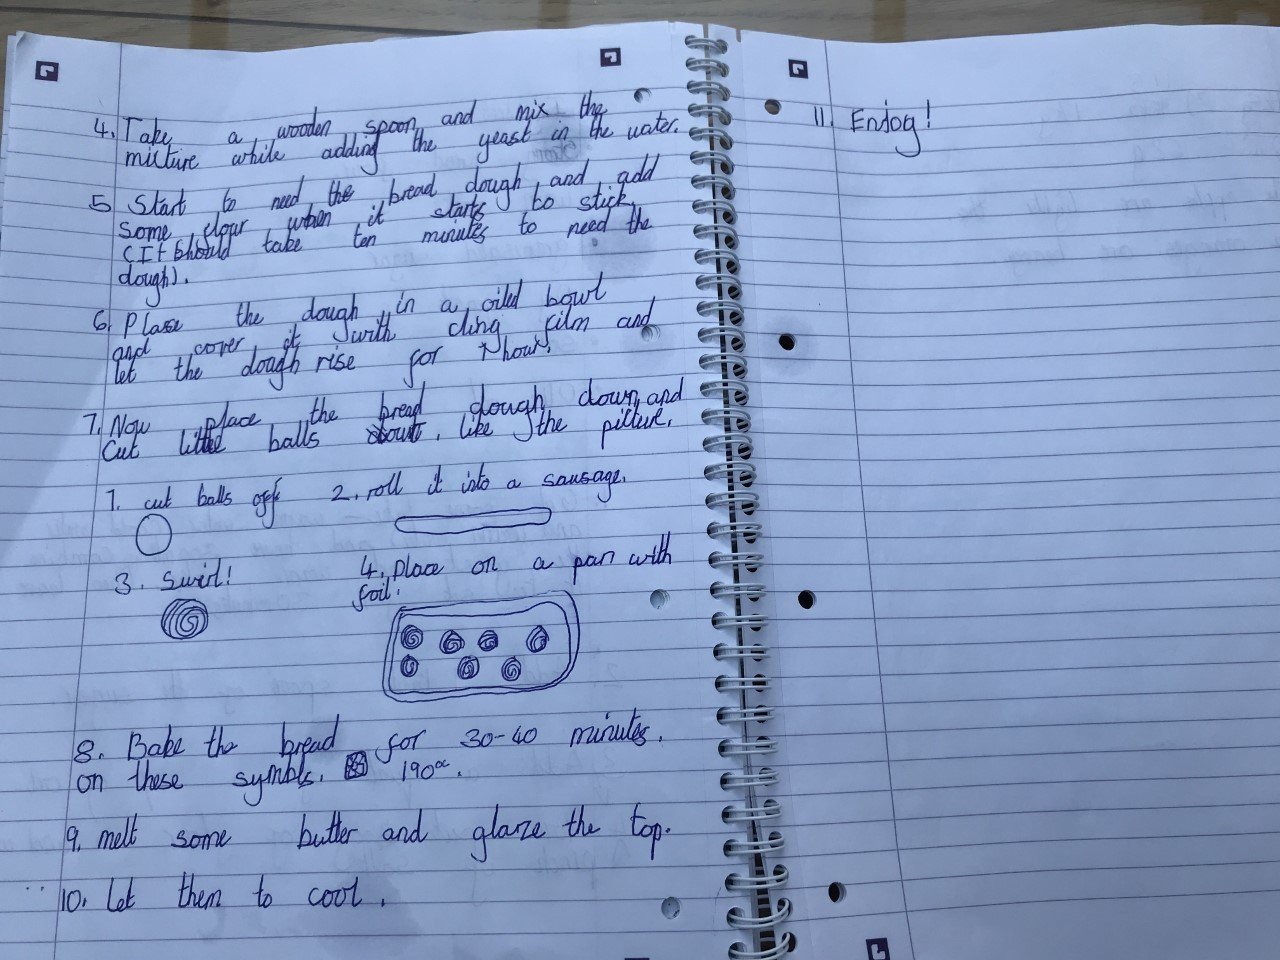 4. Take a wooden spoon and mix the
mixture while adding the yeast in the water.
5 Start to need the bread dough and add
some flour when it starts to stick.
(It should take ten minutes to need the
dough).
6. Plase the dough in a oiled bowl
and cover it with cling film and
let the dough rise for 1 hour.
7. Now place the bread dough down and
Cut little balls like the picture.
1. cut balls off
2. roll it into a sausage.
3. Swirl!
4. place on a pan with
foil.
8. Bake the bread for 30-40 minutes.
on these symbls. 190°.
9. melt some butter and glaze the top.
10. Let them to cool.
11. Enjoy!